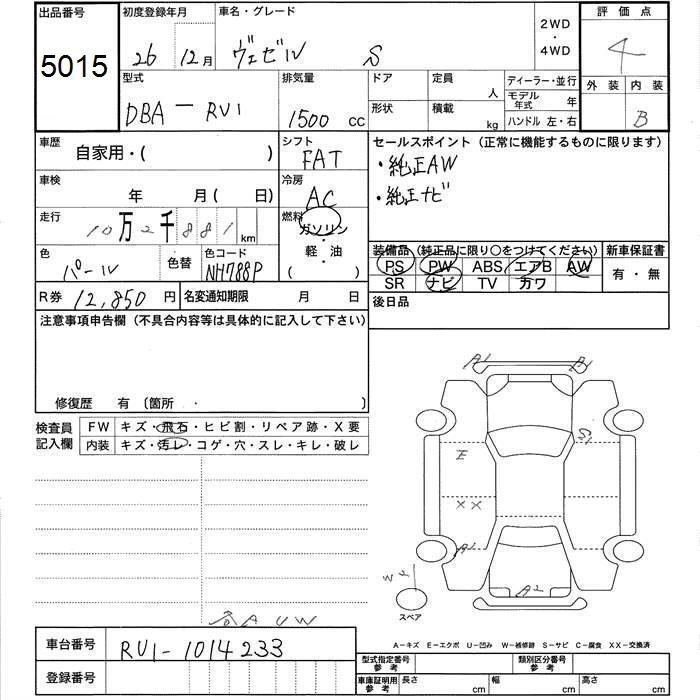 出品番号 初度登録年月 車名・グレード 2WD・4WD 評価点
5015 26 12月 ヴェゼル S 4
外装 内装
B
型式 排気量 ドア 定員 人 ディーラー・並行
DBA-RU1 1500 cc 形状 積載 kg モデル年式 年
ハンドル 左・右
車歴 自家用・( ) シフト FAT セールスポイント（正常に機能するものに限ります）
・純正AW
・純正ナビ
車検 年 月( 日) 冷房 AC
走行 10万2千881km 燃料 ガソリン・軽・油 ( )
色 パール 色替 色コード NH788P
装備品（純正品に限り○をつけてください） 新車保証書
PS PW ABS エアB AW 有・無
SR ナビ TV カワ
R券 12,850円 名変通知期限 月 日 後日品
注意事項申告欄（不具合内容等は具体的に記入して下さい）
修復歴 有 〔箇所 ・ 〕
検査員記入欄 FW キズ・飛石・ヒビ割・リペア跡・X要
内装 キズ・汚レ・コゲ・穴・スレ・キレ・破レ
A1 A1
S1
E
XX
A1
A2
スペア
A UW
A－キズ E－エクボ U－凹み W－補修跡 S－サビ C－腐食 XX－交換済
車台番号 RU1-1014233
登録番号
型式指定番号 参考 類別区分番号 参考
車庫証明用 参考 長さ cm 幅 cm 高さ cm